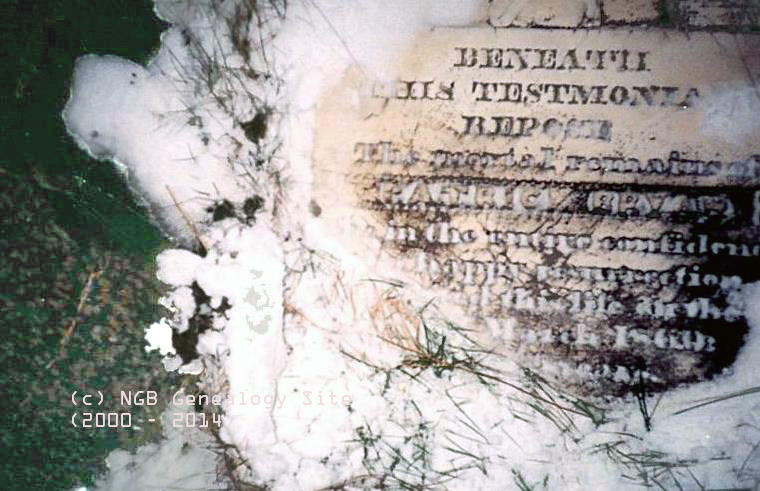 BENEATH
THIS TESTMONIA
REPOSE
The mortal remains of
in the entire confidenc
happy resurrection
this life on the
March 1860
(c) NGB Genealogy Site
(2000 - 2014